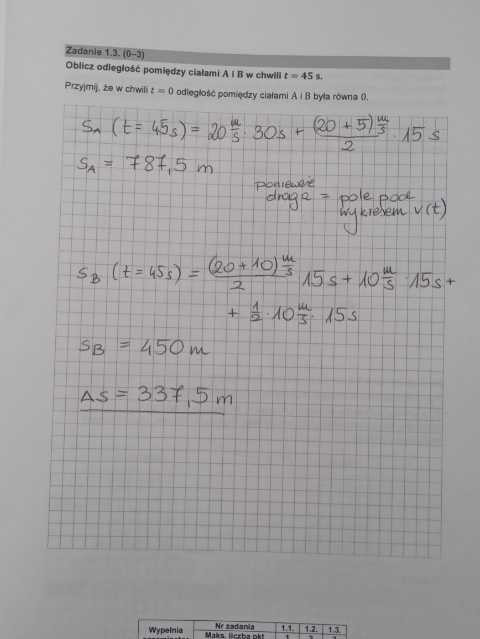 Zadanie 1.3. (0–3)
Oblicz odległość pomiędzy ciałami A i B w chwili t = 45 s.
Przyjmij, że w chwili t = 0 odległość pomiędzy ciałami A i B była równa 0.
S_A (t = 45s) = 20 m/s · 30s + (20 + 5) m/s / 2 · 15 s
S_A = 787,5 m
ponieważ
droga = pole pod
wykresem v(t)
S_B (t = 45s) = (20 + 10) m/s / 2 · 15 s + 10 m/s · 15s +
+ 1/2 · 10 m/s · 15s
S_B = 450 m
ΔS = 337,5 m
Wypełnia
Nr zadania 1.1. 1.2. 1.3.
Maks. liczba pkt